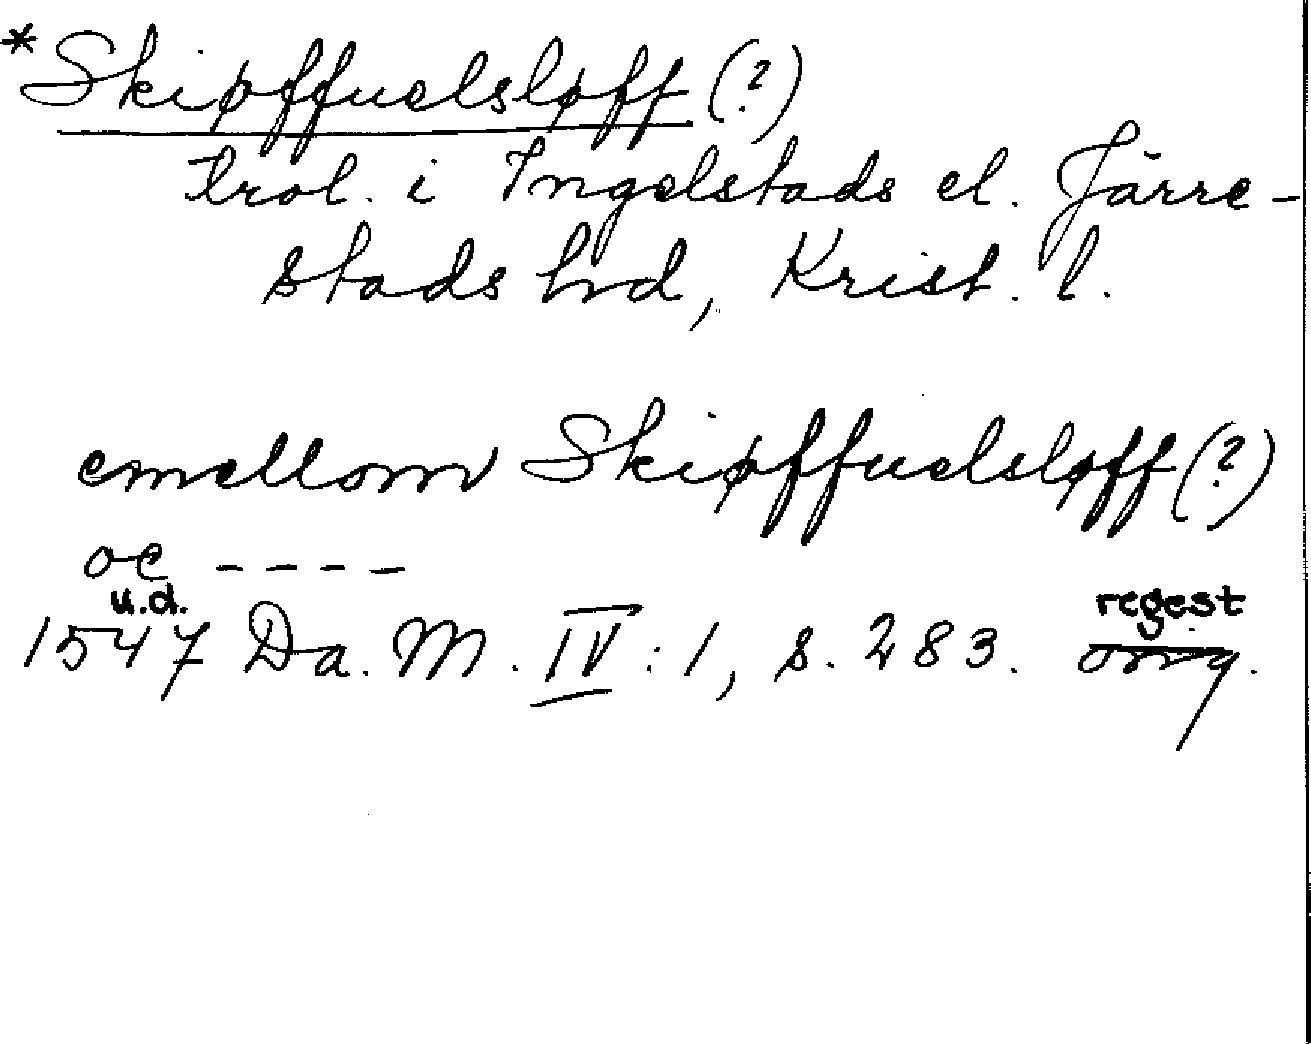 *Skipffuelsløff (?)
trol. i Ingelstads el. Järre-
stads hd, Krist. l.
emellom Skipffuelsløff (?)
oc ----
u.d. regest
1547 Da. M. IV : 1, s. 283. orig.